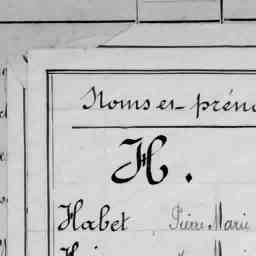 Noms et prén
H.
Habet Pierre Marie